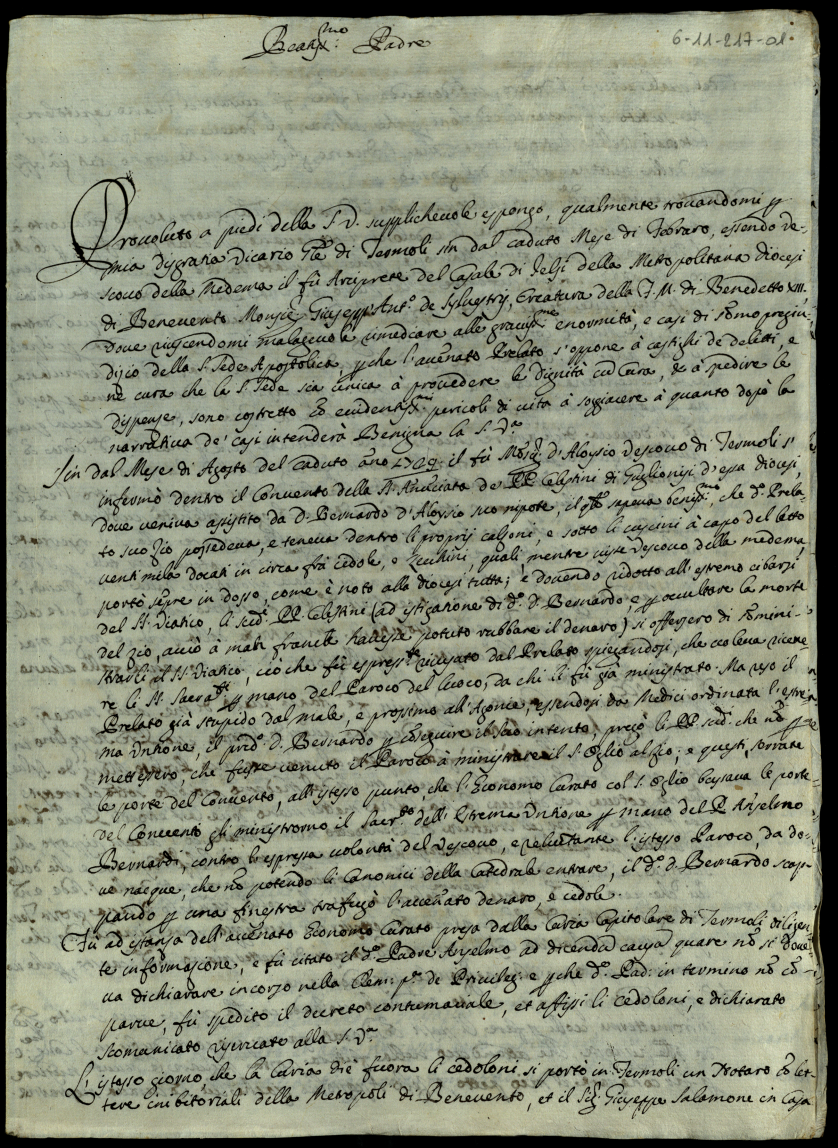 6-11-217-01.
Beatiss:mo Padre
Provoluto a piedi della S. V. supplichevole espongo, qualmente trovandomi p
mia disgratia Vicario Gnle di Termoli sin dal caduto Mese di Febraro, essendo Ve-
scovo della Medema il fù Arciprete del Casale di Jelsi della Metropolitana Diocesi
di Benevento Monsig.r Giusepp'Ant.o de Sylvestry, Creatura della F. M. di Benedetto XIII.
dove riuscendomi malagevole rimediare alle gravissime enormità, e casi di sommo pregiu-
dizio della S. Sede Apostolica, p che l'accennato Prelato s'oppone à castighi de delitti, e
ne cura che la S. Sede sia unica à provedere le Dignità cum Cura, & à spedire le
dispense, sono costretto co evidentissimi pericoli di vita à soggiacere à quanto dopò la
narrativa de' casi intenderà Benigna la S. V.a
Sin dal Mese di Agosto del caduto año 1729: il fù Mons.r d'Aloysio Vescovo di Termoli s'
infermò dentro il Convento della SS. Añunciata de' PP. Celestini di Guglionisi d'essa diocesi,
dove veniva assistito da D. Bernardo d'Aloysio suo nipote, il qle sapeva beniss.mo, che d.o Prela-
to suo Zio possedeva, e teneva dentro li proprij calzoni, e sotto li cuscini à capo del letto
venti mila docati in circa frà cedole, e Zecchini, quali, mentre visse Vescovo della medema,
portò sẽpre in dosso, come è noto alla diocesi tutta; e dovendo ridotto all'estremo cibarsi
del SS. Viatico, li sud.i PP. Celestini (ad istigazione di d.o D. Bernardo e p occultare la morte
del zio, acciò à man franca havesse potuto rubbare il denaro) si offersero di sommini-
strarli il SS. Viatico, ciò che fù express.te ricusato dal Prelato spiegandosi, che voleva riceve-
re li SS. Sacra.ti p mano del Paroco del luoco, da chi li fù già ministrato. Ma reso il
Prelato già stupido dal male, e prossimo all'Agonia, essendosi da Medici ordinata l'estre-
ma Untione, il pred.o D. Bernardo p conseguire il suo intento, pregò li PP. sud.i che nõ p-
mettessero, che fusse venuto il Paroco à ministrare il S. Oglio al zio; e questi, serrate
le porte del Convento, all'istesso punto che l'Economo Curato col S. Oglio bussava le porte
del Convento gli ministrorno il Sacr.to dell'Estrema Untione p mano del P. Anselmo
Bernardi, contro l'espressa volontà del Vescovo, e reluttante l'istesso Paroco, da do-
ve nacque, che nõ potendo li Canonici della Catedrale entrare, il d.o D. Bernardo scap-
pando p una finestra trafugò l'accennato denaro, e cedole.
Fù ad istanza dell'accenato Economo Curato presa dalla Curia Capitolare di Termoli diligen-
te informazione, e fù citato il d.o Padre Anselmo ad dicendã causã quare nõ si dove-
va dichiarare incorzo nella Clem: p.a de Privileg: e p che d.o Pad: in termino nõ cõ-
parve, fù spedito il decreto contumaciale, et affissi li cedoloni, e dichiarato
scomunicato riservato alla S. V.a
L'istesso giorno, che la Curia diè fuora li cedoloni si portò in Termoli un Notaro cõ let-
tere inibitoriali della Metropoli di Benevento, et il Sig.r Giuseppe Salamone in Casa